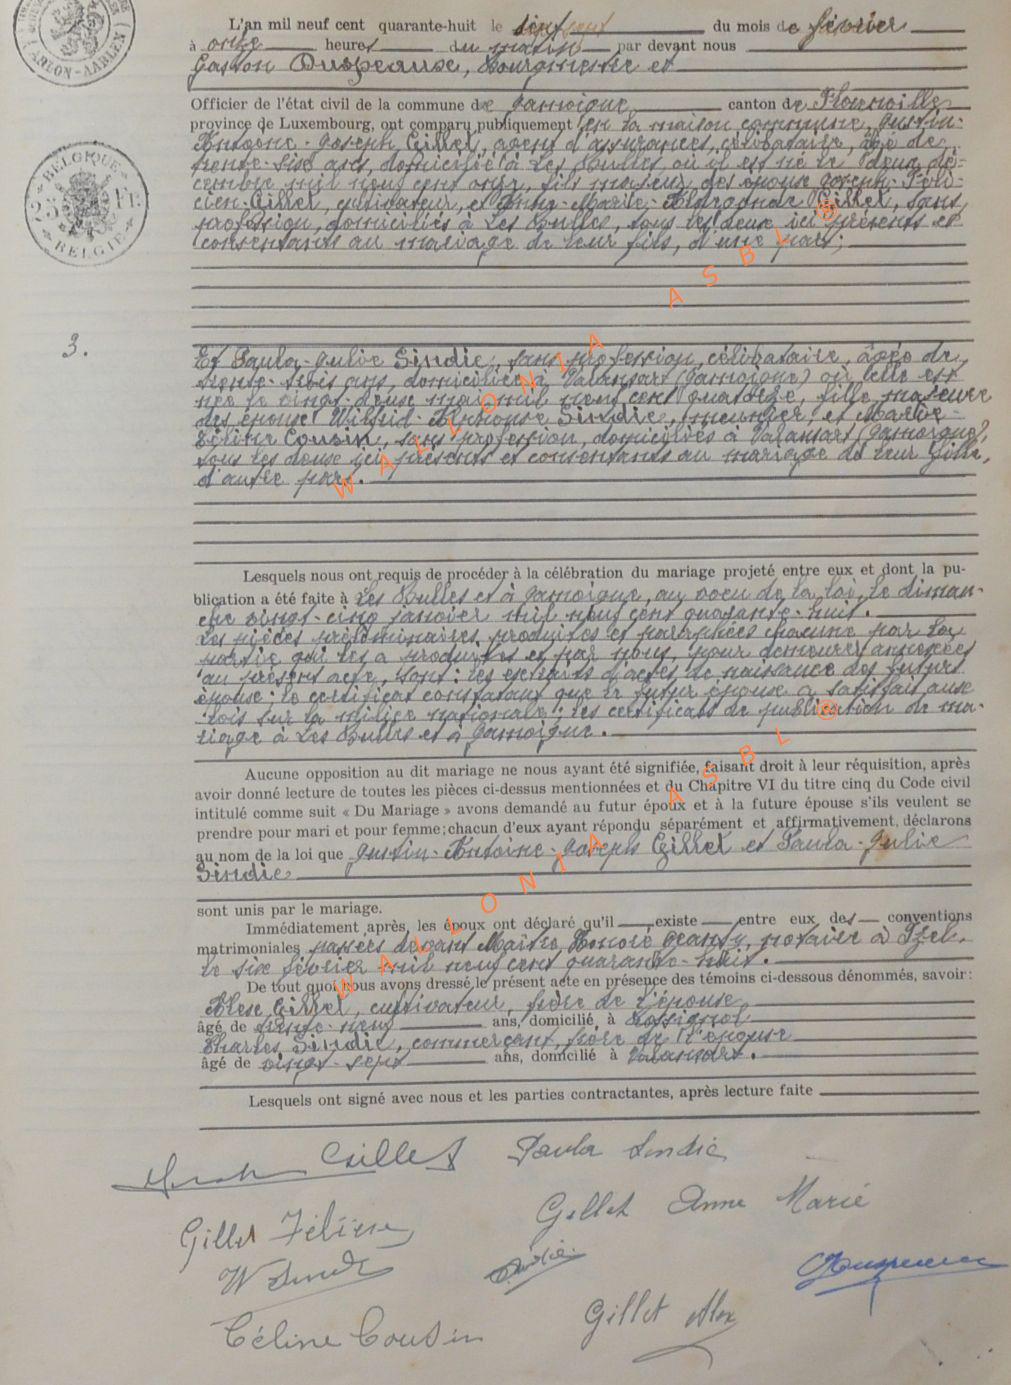 L'an mil neuf cent quarante-huit le sept du mois de février
à onze heures du matin par devant nous
Gaston Duspeaux, Bourgmestre et
Officier de l'état civil de la commune de Jamoigne canton de Florenville
province de Luxembourg, ont comparu publiquement en la maison commune, Justin-
Antoine-Joseph Gillet, agent d'assurances, célibataire, âgé de
trente-six ans, domicilié à Les Bulles, où il est né le deux dé-
cembre mil neuf cent onze, fils majeur des époux Joseph-Féli-
cien Gillet, cultivateur, et Anne-Marie Gillet, sans
profession, domiciliés à Les Bulles, tous les deux ici présents et
consentants au mariage de leur fils, d'une part;
3.
Et Paula-Julie Sindic, sans profession, célibataire, âgée de
trente-trois ans, domiciliée à Valansart (Jamoigne) où elle est
née le vingt-deux mai mil neuf cent quatorze, fille majeure
des époux Wilfrid-Alphonse Sindic, meunier, et Marie-
Céline Cousin, sans profession, domiciliés à Valansart (Jamoigne),
tous les deux ici présents et consentants au mariage de leur fille,
d'autre part.
Lesquels nous ont requis de procéder à la célébration du mariage projeté entre eux et dont la pu-
blication a été faite à Les Bulles et à Jamoigne, au voeu de la loi, le diman-
che vingt-cinq janvier mil neuf cent quarante-huit.
Les pièces préliminaires produites et paraphées chacune par la
partie qui les a produites et par nous, pour demeurer annexées
au présent acte, sont: les extraits d'actes de naissance des futurs
époux; le certificat constatant que le futur époux a satisfait aux
lois sur la milice nationale; les certificats de publication de ma-
riage à Les Bulles et à Jamoigne.
Aucune opposition au dit mariage ne nous ayant été signifiée, faisant droit à leur réquisition, après
avoir donné lecture de toutes les pièces ci-dessus mentionnées et du Chapitre VI du titre cinq du Code civil
intitulé comme suit « Du Mariage » avons demandé au futur époux et à la future épouse s'ils veulent se
prendre pour mari et pour femme; chacun d'eux ayant répondu séparément et affirmativement, déclarons
au nom de la loi que Justin-Antoine-Joseph Gillet et Paula-Julie
Sindic
sont unis par le mariage.
Immédiatement après, les époux ont déclaré qu'il existe entre eux des conventions
matrimoniales passées devant Maître Honoré Jeanty, notaire à Izel,
le six février mil neuf cent quarante-huit.
De tout quoi nous avons dressé le présent acte en présence des témoins ci-dessous dénommés, savoir:
Alex Gillet, cultivateur, frère de l'époux
âgé de trente-neuf ans, domicilié à Rossignol
Charles Sindic, commerçant, frère de l'épouse
âgé de vingt-sept ans, domicilié à Valansart.
Lesquels ont signé avec nous et les parties contractantes, après lecture faite
Gillet Paula Sindic
Gillet Félicien Gillet Anne Marie
W Sindic Sindic
Céline Cousin Gillet Alex
ARLON-AARLEN
BELGIQUE
BELGIE
WALLONIA ASBL ®
WALLONIA ASBL ®